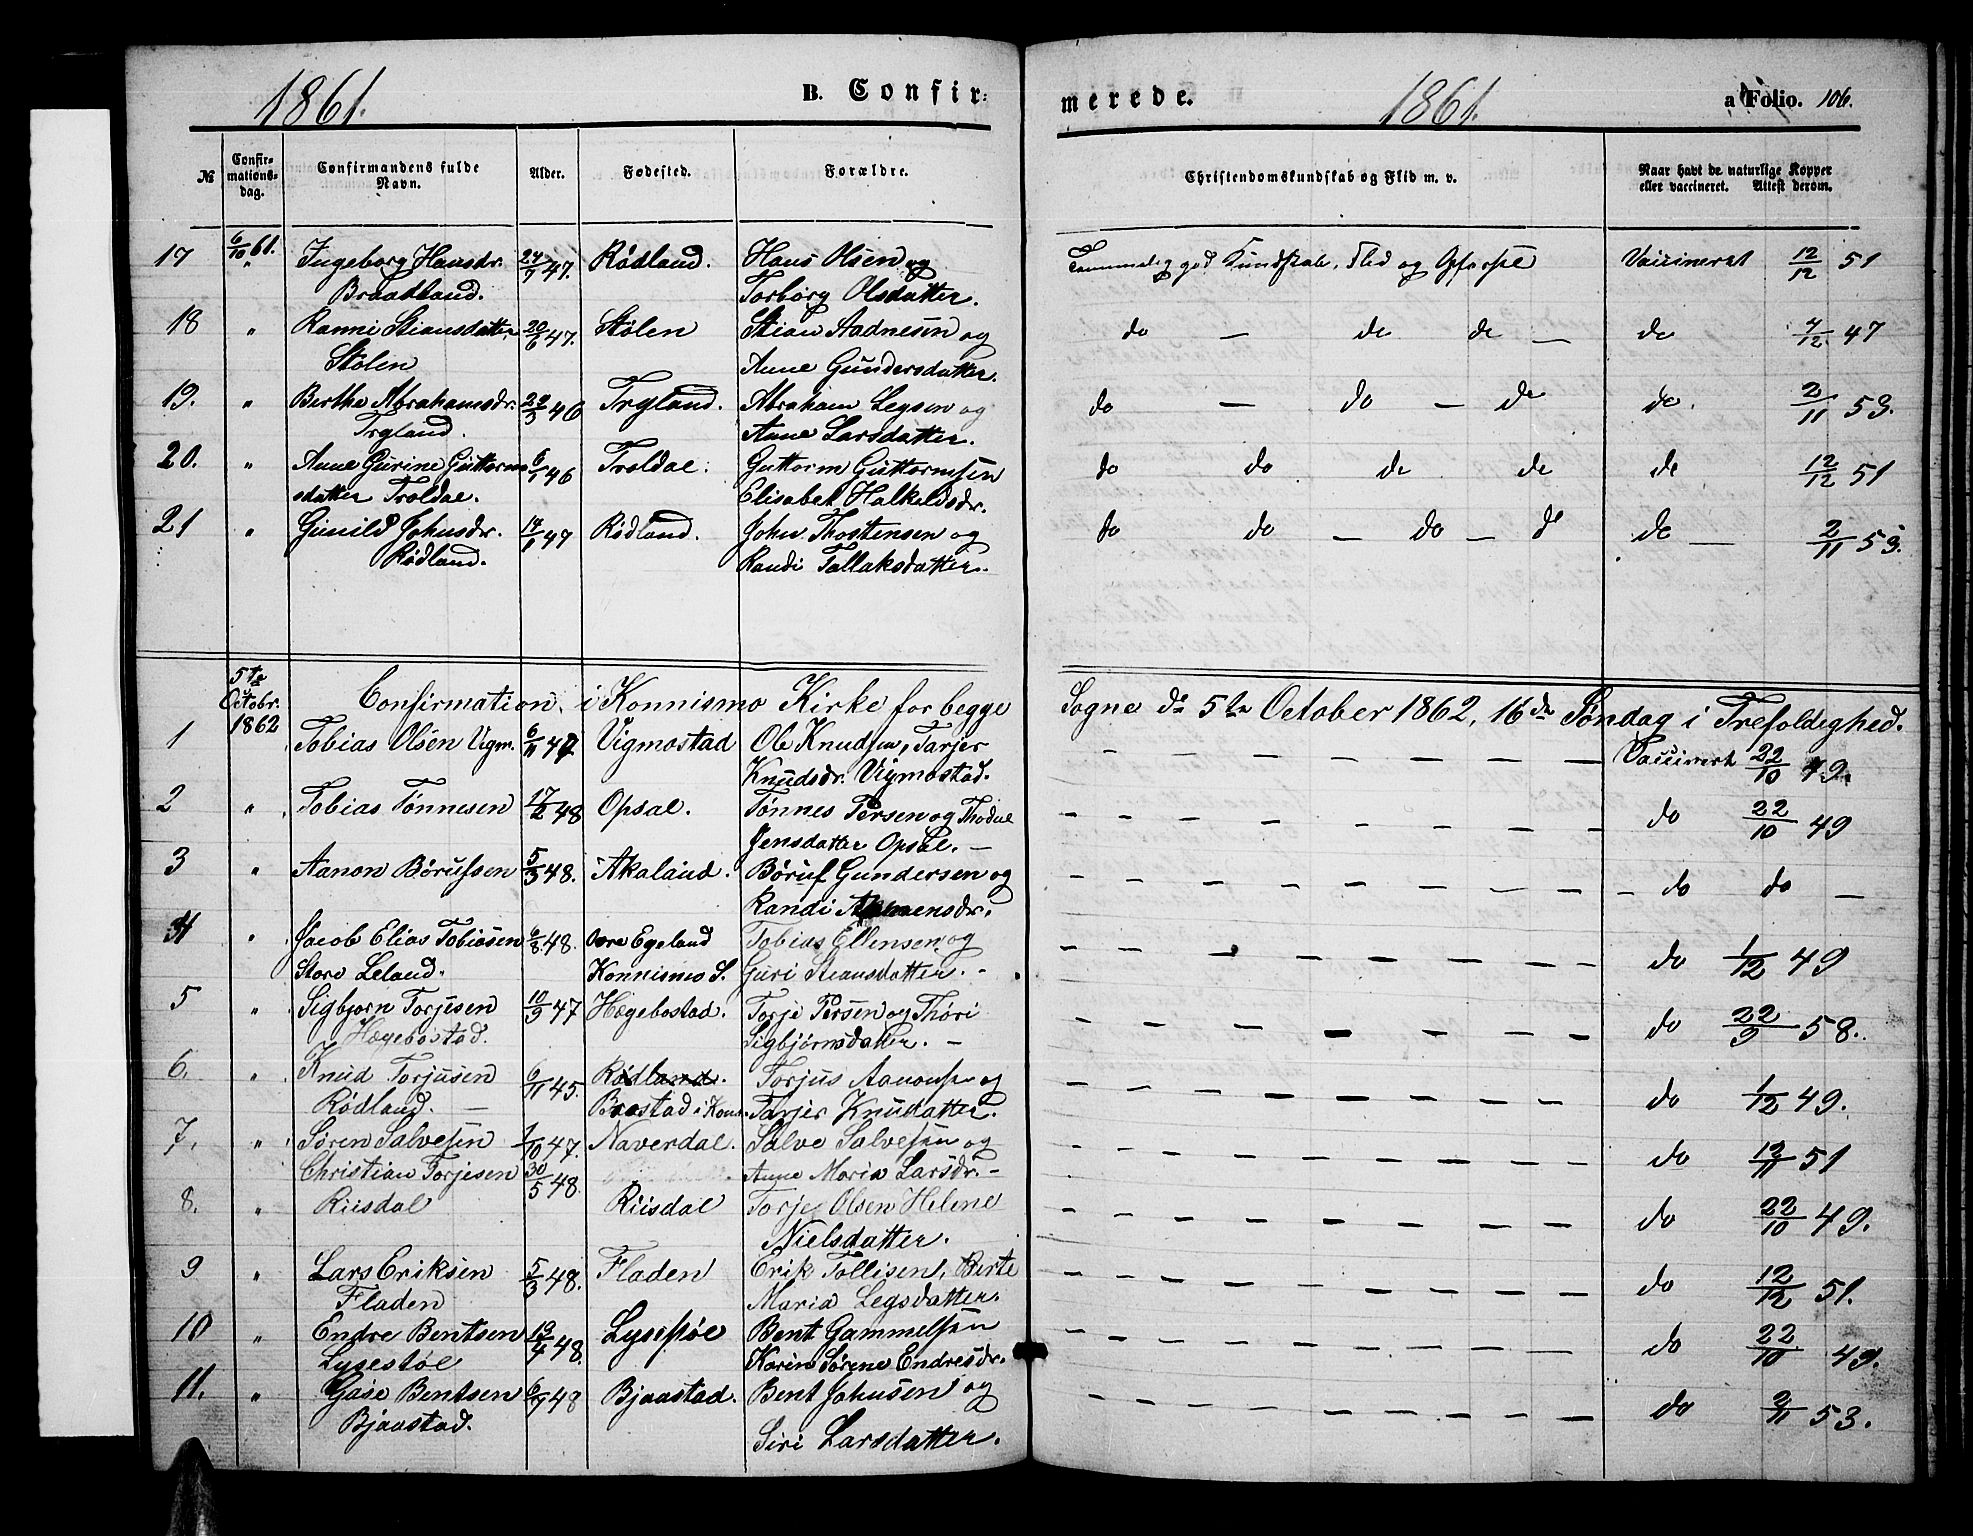 1861. B. Confir: merede. 1861. a Folio. 106.
№ Confirmations-dag. Confirmandens fulde Navn. Alder. Fødested. Forældre. Christendomskundskab og Flid m. v. Naar havt de naturlige Kopper eller vaccineret. Attest derom.
17 6/10 61. Ingeborg Hansdr. 24/7 47. Rødland. Hans Olsen og Temmelig god Kundskab, Flid og Opførsel Vaccineret 12/12 51
Braadland. Torborg Olsdatter.
18 " Ranni Stiansdatter 20/6 47. Stølen Stian Aadnesen og do — do do — do 4/12 47
Stølen Anne Gundersdatter.
19. " Berthe Abrahamsdr. 22/3 46 Trygland. Abraham Legsen og do — do — do do. 2/11 53.
Trygland. Anne Larsdatter.
20. " Anne Gurine Guttorm 6/1 46 Troldal: Guttorm Guttormsen do do do do do 12/12 51
sdatter Troldal. Elisabet Halkeldsdr.
21 " Gunild Johnsdr. 14/1 47 Rødland. John Thostensen og do do — do — do do — 2/11 53.
Rødland. Randi Tallaksdatter.
5te Octobr. 1862 Confirmation i Konnismo Kirke for begge Sogne d. 5te October 1862, 16de Søndag i Trefoldighed.
1 Tobias Olsen Vigm. 6/11 47 Vigmostad Ole Knudsen, Tarjer — — — — — — — — Vaccineret 22/10 49.
Knudsdr. Vigmostad.
2 " Tobias Tønnesen 17/2 48 Opsal. Tønnes Persen og Thodne — — — — — — — — — do 22/10 49
Jensdatter Opsal. —
3 " Aanon Børufsen 5/3 48. Akaland. Børuf Gundersen og — — — — — — — — — — do do —
Randi
4 " Jacob Elias Tobiasen 6/8 48. Øvre Egeland Tobias Ellensen og — — — — — — — — — do 1/12 49
Store Leland. Konnismo S. Guri Steansdatter. -
5 " Sigbjørn Torjesen 10/9 47 Hægebostad. Torje Persen og Thøri — — — — — — — — — do 22/9 58.
Hægebostad. Sigbjørnsdatter. —
6. " Knud Torjusen 6/11 45. Rødland. Torjus Aanonsen og — — — — — — — — — do 1/12 49.
Rødland. — Brostad i Kon. Tarjer Knudatter.
7. " Søren Salvesen 1/10 47. Naverdal. Salve Salvesen og — — — — — — — — — do 12/11 51
Christian Torjesen 30/5 48. Anne Maria Larsdr. -
8. " Riisdal Riisdal Torje Olsen Helene — — — — — — — — — do 22/10 49.
Nielsdatter.
9 " Lars Eriksen 5/3 48. Fladen Erik Tollisen, Berte — — — — — — — — — do 12/12 51.
Fladen Maria Legsdatter.
10 " Endre Bentsen 13/4 48. Lysestøl Bent Gammelsen — — — — — — — — — do 22/10 49.
Lysestøl Karin Sørene Endresdr.
11. " Gase Bentsen 6/9 48 Bjaastad. Bent Johnsen og — — — — — — — — — do 2/11 53.
Bjaastad. Siri Larsdatter.